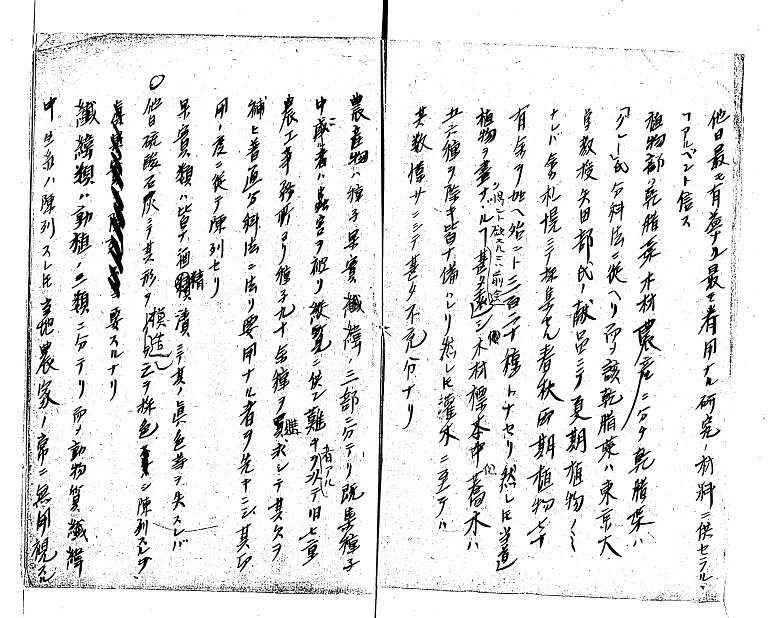 他日最モ有益ナル最モ着用ナル研究ノ材料ニ供セラルヽ
「アルベシト信ス
植物部ハ乾腊葉木材農産ニ分チ乾腊葉ハ
「グレー」氏分科法ニ従ヘリ而シテ該乾腊葉ハ東京大
学教授矢田部氏ノ献品ニシテ夏期植物ノミ
ナレバ余札幌ニテ採集セル春秋両期植物七十
有余ヲ加ヘ殆ント三百二十種トナセリ然レトモ当道
植物ヲ畫ナルハ甚タ遠シ木材標本中喬木ハ
五六種ヲ除キ皆ナ備ハレリ然レトモ灌木ニ至テハ
其数僅少ニシテ甚タ不充分ナリ
農産物ハ種子果實纖緯ノ三部ニ分テリ既集種子
中或ハ蟲害ヲ被リ縦覧ニ供シ難キ者アルヲ以テ旧七重
農工事務所ヨリ種子九十余種ヲ購求シテ其欠ヲ
補ヒ普通分科法ニ法リ要用ナル者ヲ先キニシ其応
用ノ度ニ従テ陳列セリ
果實類ハ皆ナ酒精漬ニテ其ノ眞色等ヲ失スレバ
〇他日硫酸石灰ニテ其形ヲ模造シ之ヲ採色シ陳列スルヿ
要スルナリ
纖緯類ハ動植ノ二類ニ分テリ而シテ動物質纖緯
中生糸ハ陳列スレトモ当地農家ノ常ニ無用視スル